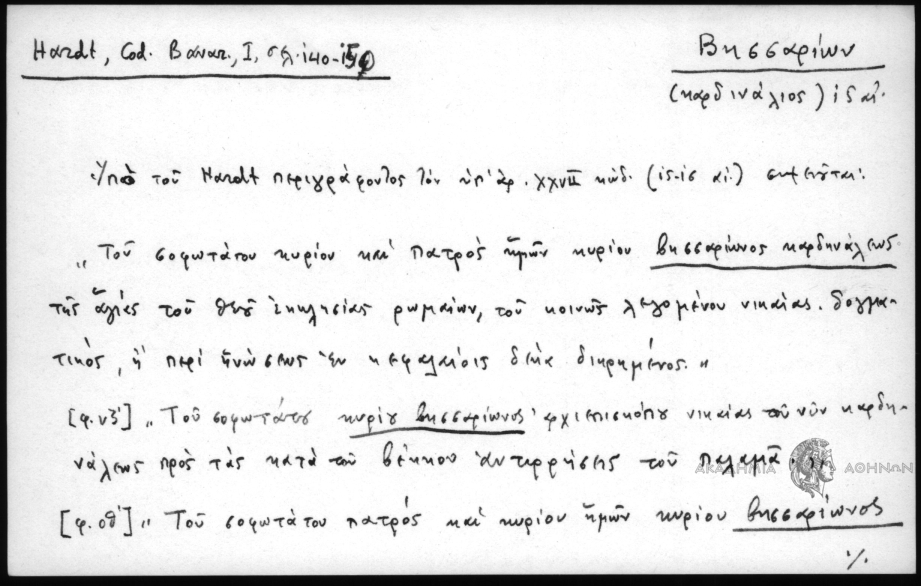 Hardt, Cod. Bavar., I, σελ. 140-
Βησσαρίων
(καρδινάλιος) ιδ αἰ.
Ὑπὸ τοῦ Hardt περιγράφοντος τὸν ὑπ' ἀρ. XXVII κώδ. (ις-ις αἰ.) σημειοῦται:
„Τοῦ σοφωτάτου κυρίου καὶ πατρὸς ἡμῶν κυρίου βησσαρίωνος καρδηνάλεως
τῆς ἁγίας τοῦ θεοῦ ἐκκλησίας ρωμαίων, τοῦ κοινῶς λεγομένου νικαίας. δογμα-
τικὸς, ἢ περὶ ἑνώσεως ἐν κεφαλαίοις δέκα διηρημένος."
[φ.νξ'] „Τοῦ σοφωτάτου κυρίου βησσαρίωνος ἀρχιεπισκόπου νικαίας τοῦ νῦν καρδη-
νάλεως πρὸς τὰς κατὰ τοῦ βέκκου ἀντιρρήσεις τοῦ Παλαμᾶ."
[φ.οθ'] „Τοῦ σοφωτάτου πατρός καὶ κυρίου ἡμῶν κυρίου βησσαρίωνος
./.
ΑΚΑΔΗΜΙΑ ΑΘΗΝΩΝ